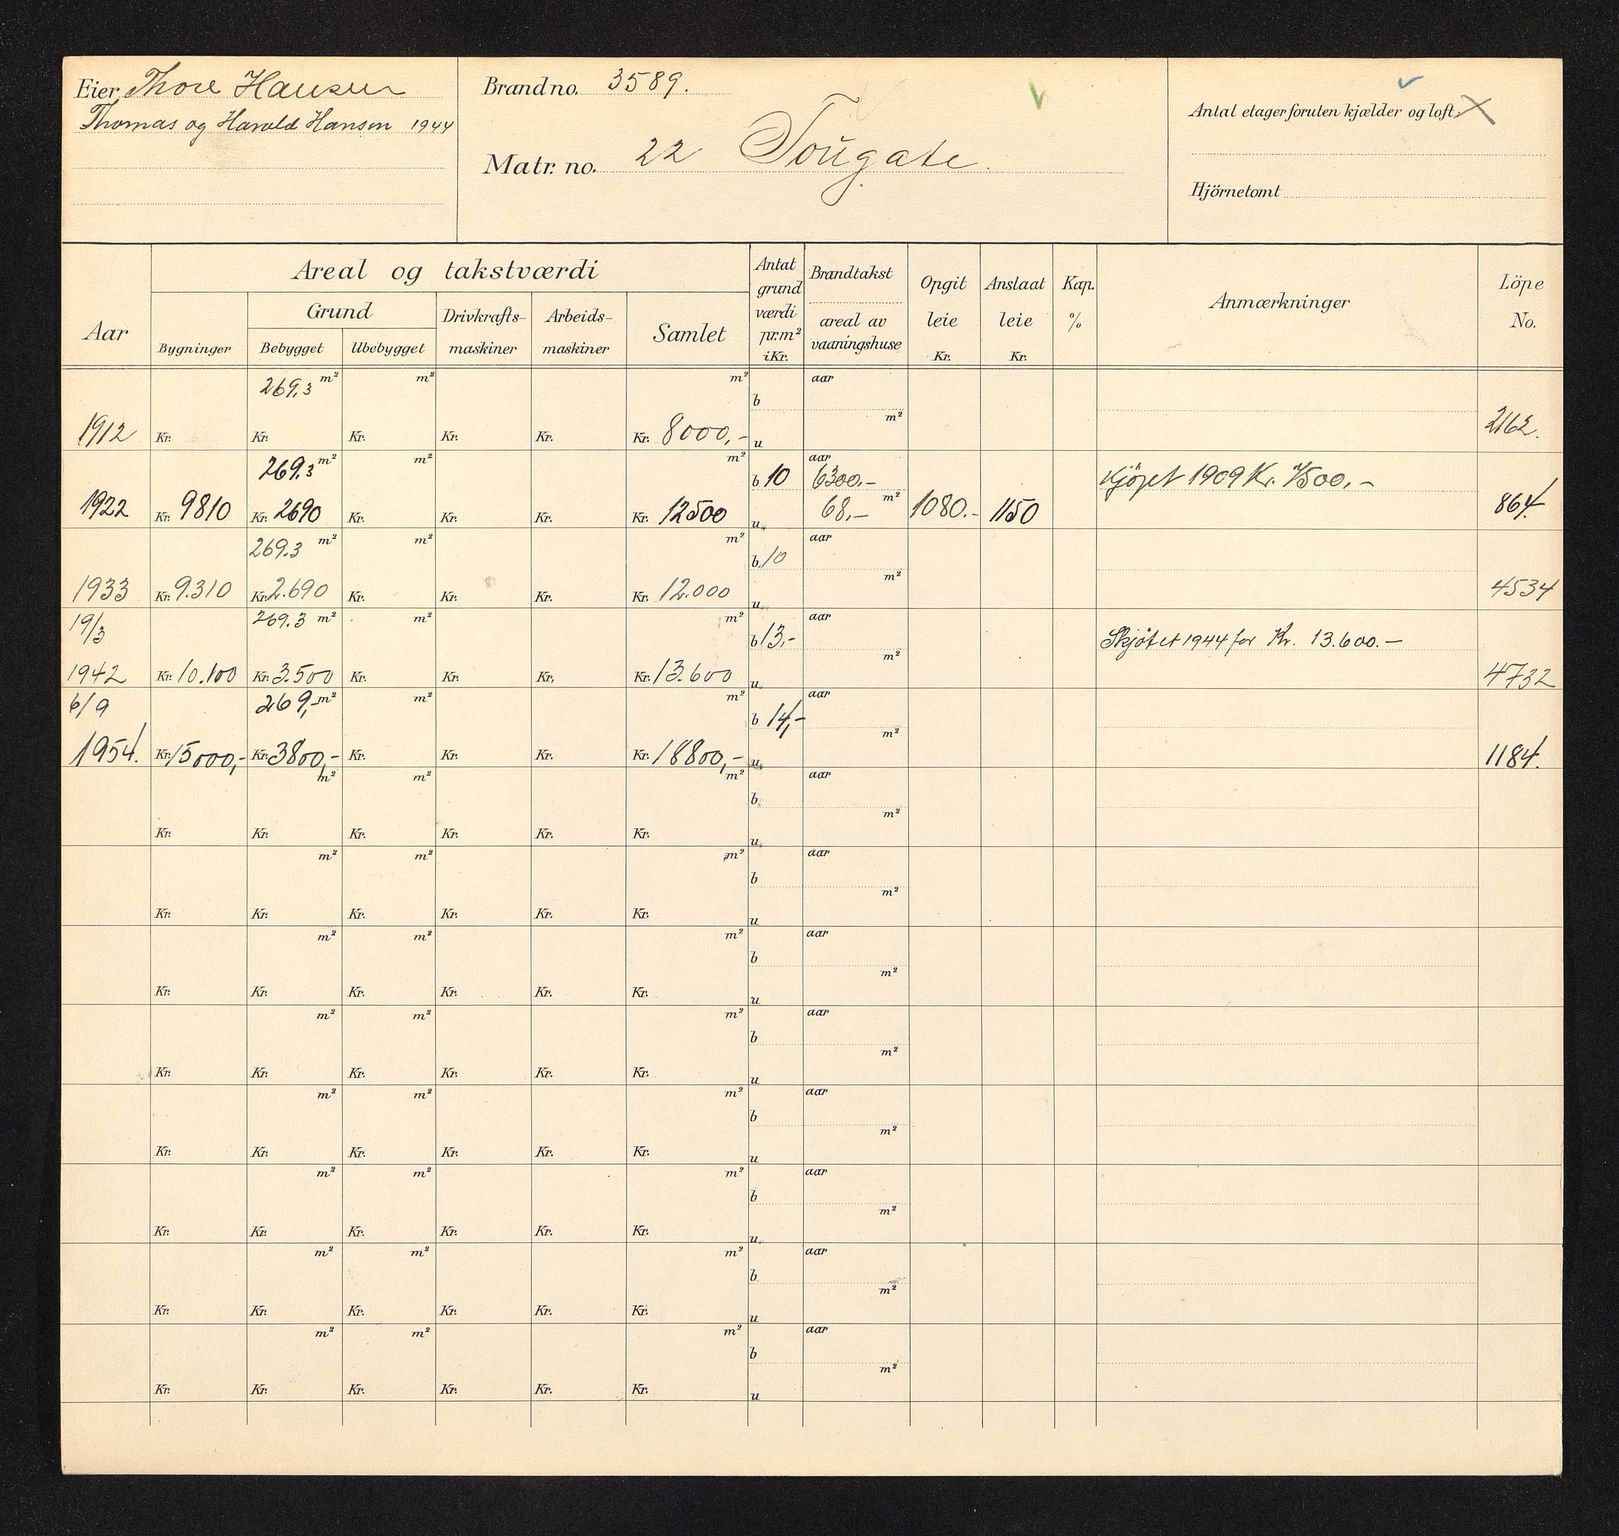 Eier Thore Hansen
Thomas og Harald Hansen 1944
Brand no. 3589.
Matr. no. 22 Tougate.
Antal etager foruten kjælder og loft.
Hjörnetomt
Aar
Areal og takstværdi
Grund
Bygninger
Bebygget
Ubebygget
Drivkrafts-
maskiner
Arbeids-
maskiner
Samlet
Antat
grund
værdi
pr.m²
i Kr.
Brandtakst
areal av
vaaningshuse
Opgit
leie
Kr.
Anslaat
leie
Kr.
Kap.
%
Anmærkninger
Löpe
No.
269,3 m² m² m² aar
b
m²
1912 Kr. Kr. Kr. Kr. Kr. Kr. 8000,- u 2162.
269,3 m² m² m² aar
b 10 6300.- Kjöpt 1909 Kr. 7500,-
1922 Kr. 9810 Kr. 2690 Kr. Kr. Kr. Kr. 12500 u. 68,- m² 1080.- 1150 864.
269.3 m² m² m² aar
b. 10
m²
1933 Kr. 9.310 Kr. 2.690 Kr. Kr. Kr. Kr. 12.000 u. 4534
19/3 269.3 m² m² m² aar
b 13,- Skjøtet 1944 for Kr. 13.600.-
m²
1942 Kr. 10.100 Kr. 3.500 Kr. Kr. Kr. Kr. 13.600 u. 4732
6/9 269,- m² m² m² aar
b 14,-
m²
1954. Kr. 15000,- Kr. 3800,- Kr. Kr. Kr. Kr. 18800,- u. 1184.
m² m² m² aar
b.
m²
Kr. Kr. Kr. Kr. Kr. Kr. u.
m² m² m² aar
b
m²
Kr. Kr. Kr. Kr. Kr. Kr. u
m² m² m² aar
b
m²
Kr. Kr. Kr. Kr. Kr. Kr. u
m² m² m² aar
b
m²
Kr. Kr. Kr. Kr. Kr. Kr. u
m² m² m² aar
b
m²
Kr. Kr. Kr. Kr. Kr. Kr. u
m² m² m² aar
b
m²
Kr. Kr. Kr. Kr. Kr. Kr. u.
m² m² m² aar
b
m²
Kr. Kr. Kr. Kr. Kr. Kr. u
m² m² m² aar
b
m²
Kr. Kr. Kr. Kr. Kr. Kr. u